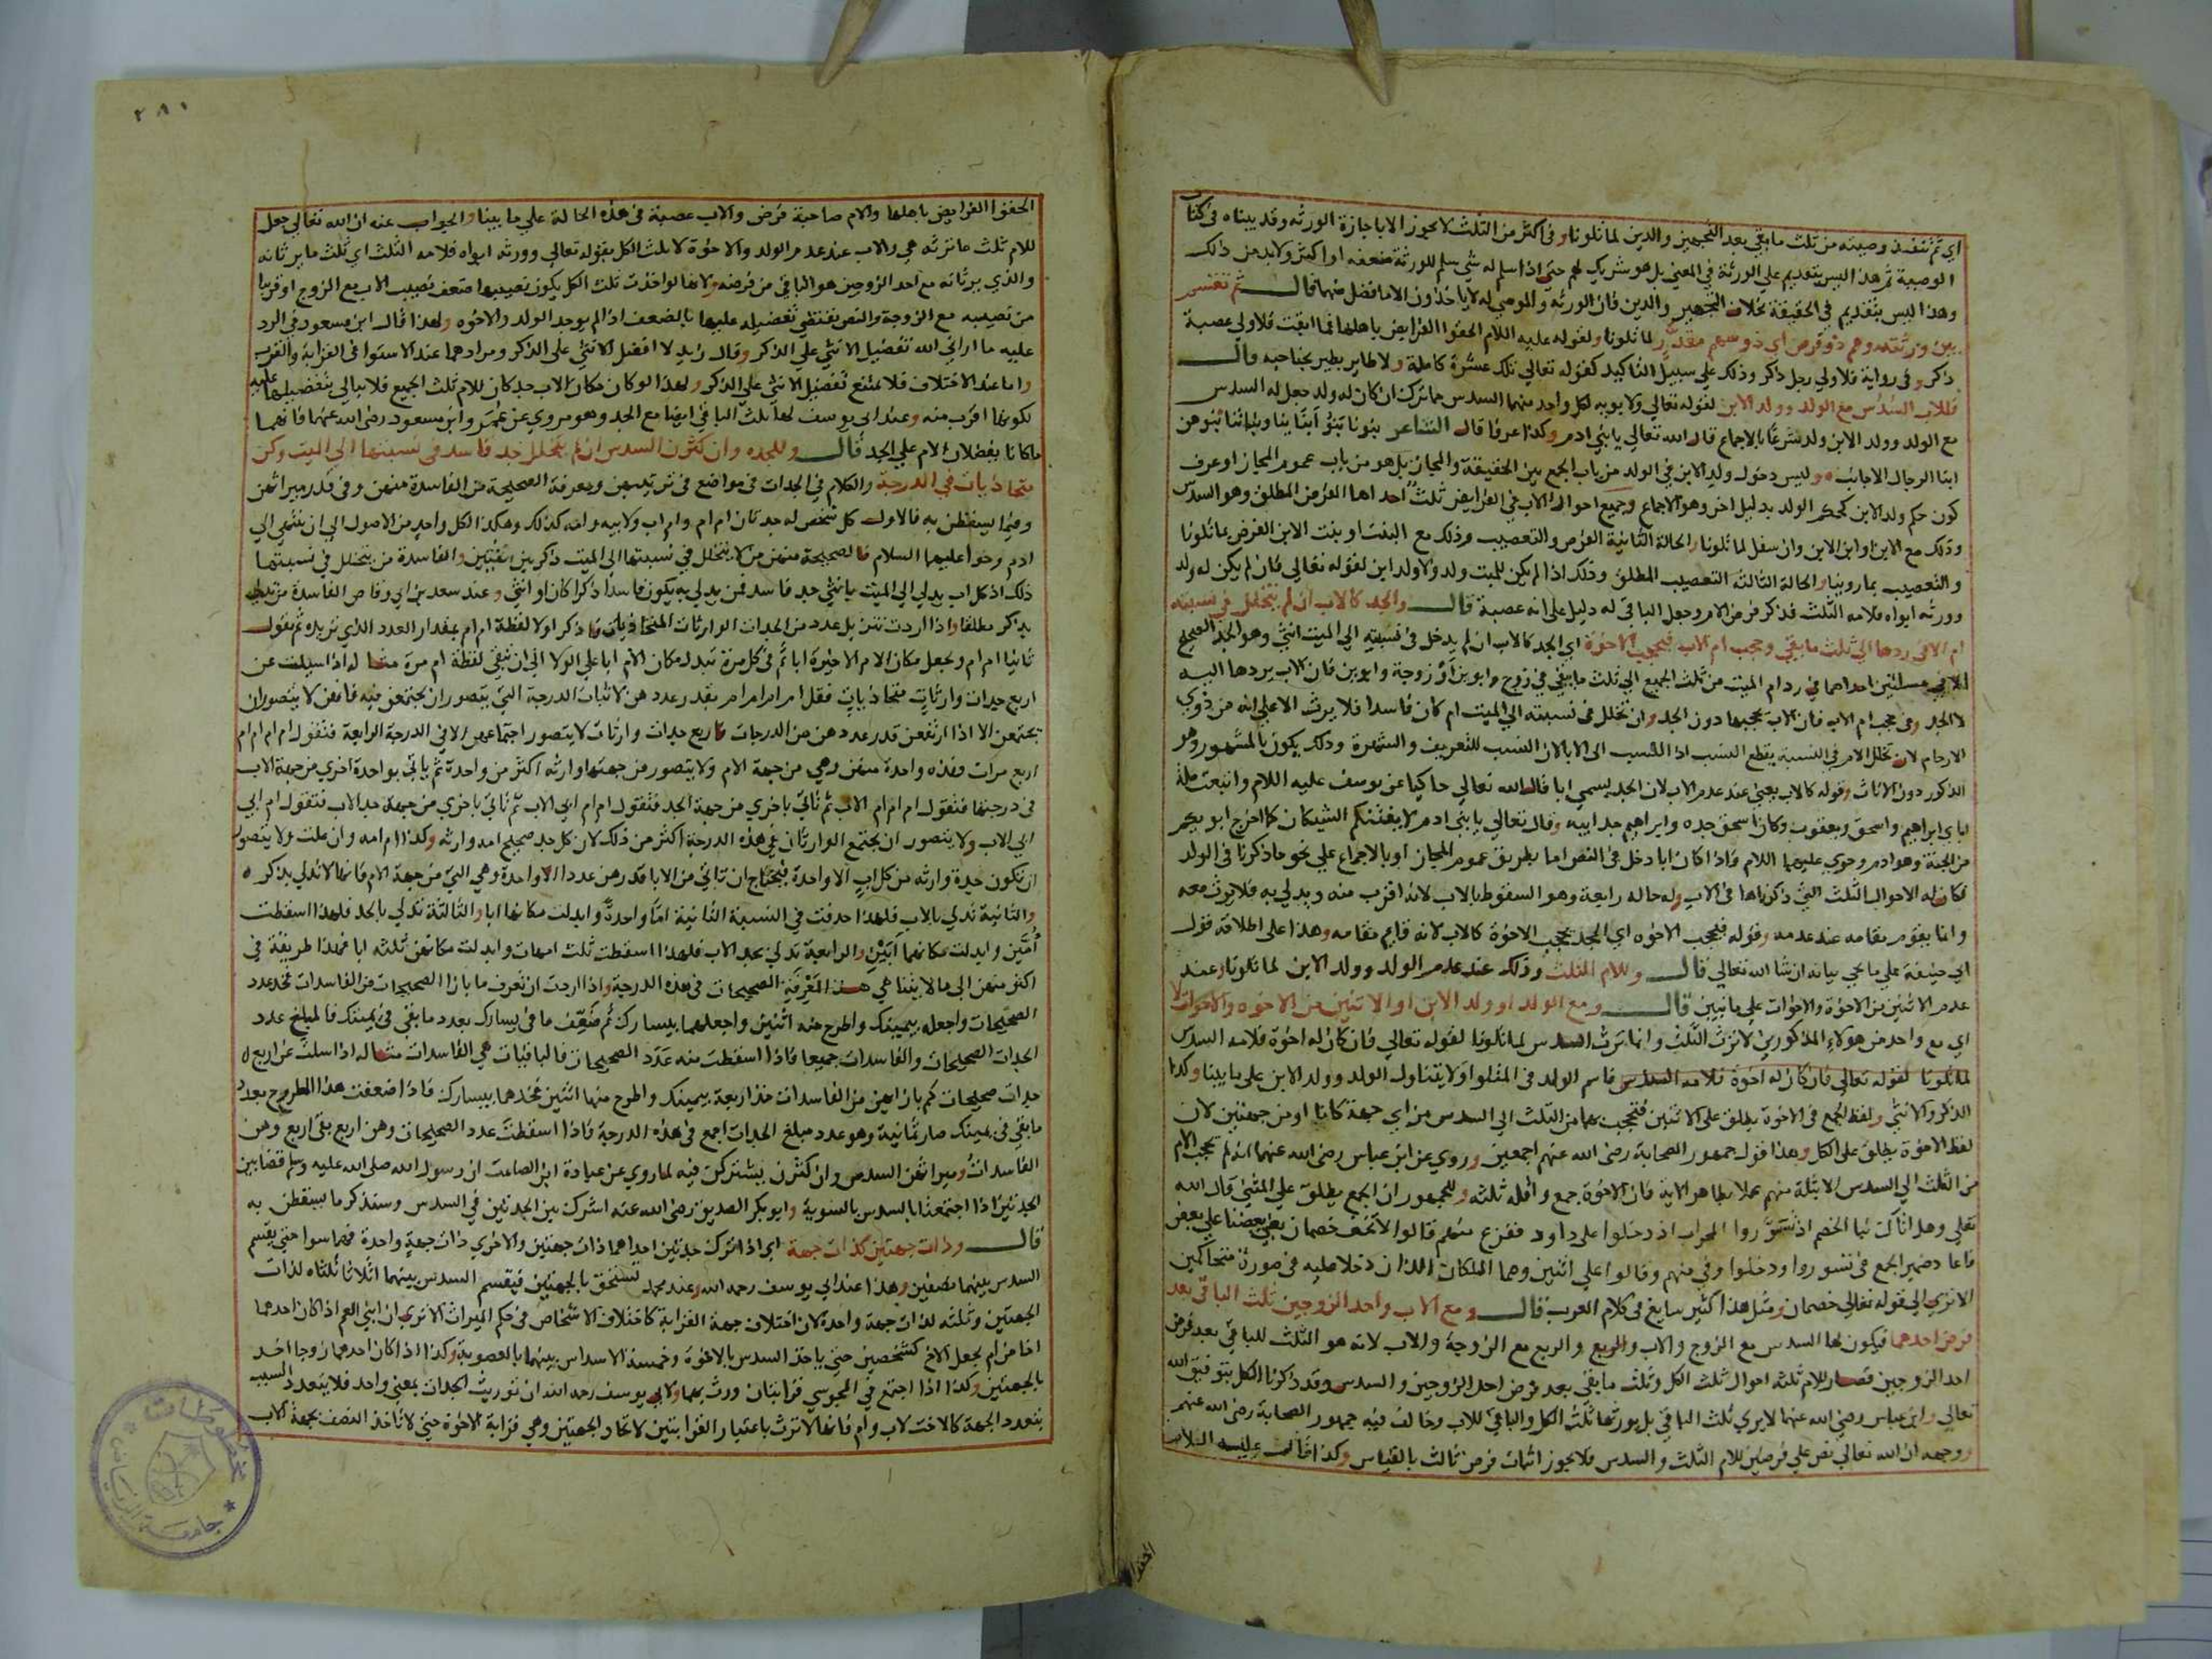 اي ثم تنفذ وصيته من ثلث ما بقي بعد التجهيز والدين لما تلونا وفي اكثر من الثلث لا يجوز الا باجازة الورثه وقد بيناه في كتاب
الوصية ثم هذا ليس بتقديم علي الورثة في المعني بل هو شريك لهم حتي اذا سلم له شي سلم للورثة ضعفه او اكثر ولا بد من ذلك
وهذا ليس بتقديم في الحقيقة بخلاف التجهيز والدين فان الورثه والموصي له لا ياخذون الا ما فضل منهما قال ثم تقسم
بين ورثته وهم ذو فرض اي ذو سهم مقدر لما تلونا ولقوله عليه اللام الحقوا الفرايض باهلها فما ابقت فلاولي عصبة
ذكر وفي رواية فلاولي رجل ذكر وذلك علي سبيل التاكيد كقوله تعالي تلك عشرة كاملة ولا طاير يطير بجناحيه قال
فللاب السدس مع الولد وولد الابن لقوله تعالي ولابويه لكل واحد منهما السدس مما ترك ان كان له ولد جعل له السدس
مع الولد وولد الابن ولد شرعا بالاجماع قال الله تعالي يا بني ادم وكذا عرفا قال الشاعر بنونا بنو ابنائنا وبناتنا بنوهن
ابنا الرجال الاجانب وليس دخول ولد الابن في الولد من باب الجمع بين الحقيقة والمجاز بل هو من باب عموم المجاز او عرف
كون حكم ولد الابن كحكم الولد بدليل اخر وهو الاجماع وجميع احوال الاب في الفرايض ثلث احداها الفرض المطلق وهو السدس
وذلك مع الابن او ابن الابن وان سفل لما تلونا والحالة الثانية الفرض والتعصيب وذلك مع البنت او بنت الابن الفرض بما تلونا
والتعصيب بما روينا والحالة الثالثة التعصيب المطلق وذلك اذا لم يكن للميت ولد ولا ولد ابن لقوله تعالي فان لم يكن له ولد
وورثه ابواه فلامه الثلث فذكر فرض الام وجعل الباقي له دليل علي انه عصبة قال والجد كالاب ان لم يتخلل في نسبته
ام الا في ردها الي ثلث ما بقي وحجب ام الاب فيحجب الاخوة اي الجد كالاب ان لم يدخل في نسبته الي الميت انثي وهو الجد الصحيح
الا في مسئلتين احداهما في رد ام الميت من ثلث الجميع الي ثلث ما بقي في زوج وابوين او زوجة وابوين فان الاب يردها اليه
لا الجد وفي حجب ام الاب فان الاب يحجبها دون الجد وان تخلل في نسبته الي الميت ام كان فاسدا فلا يرث الا علي انه من ذوي
الارحام لان تخلل الام في النسبة يقطع النسب اذ النسب الي الابا لان النسب للتعريف والشهرة وذلك يكون بالمشهور وهو
الذكور دون الاناث وقوله كالاب يعني عند عدم الاب لان الجد يسمي ابا قال الله تعالي حاكيا عن يوسف عليه اللام واتبعت ملة
اباي ابراهيم واسحق ويعقوب وكان اسحق جده وابراهيم جد ابيه وقال تعالي يا بني ادم لا يفتننكم الشيطان كما اخرج ابويكم
من الجنة وهو ادم وحوي عليهما اللام فاذا كان ابا دخل في النص اما بطريق عموم المجاز او بالاجماع علي نحو ما ذكرنا في الولد
فكان له الاحوال الثلث التي ذكرناها في الاب وله حاله رابعة وهو السقوط بالاب لانه اقرب منه ويدلي به فلا يرث معه
وانما يقوم مقامه عند عدمه وقوله فيحجب الاخوه اي الجد يحجب الاخوة كالاب لانه قايم مقامه وهذا علي اطلاقه قول
ابي حنيفة علي ما يجي بيانه ان شا الله تعالي قال وللام الثلث وذلك عند عدم الولد وولد الابن لما تلونا وعند
عدم الاثنين من الاخوة والاخوات علي ما نبين قال ومع الولد او ولد الابن او الاثنين من الاخوه والاخوات لا
اي مع واحد من هولاء المذكورين لا ترث الثلث وانما ترث السدس لما تلونا لقوله تعالي فان كان له اخوة فلامه السدس
لما تلونا لقوله تعالي فان كان له اخوة فلامه السدس فاسم الولد في المتلو اولا يتناول الولد وولد الابن علي ما بينا وكذا
الذكر والانثي ولفظ الجمع في الاخوة يطلق علي الاثنين فتحجب بهما من الثلث الي السدس من اي جهة كانا او من جهتين لان
لفظ الاخوة يطلق علي الكل وهذا قول جمهور الصحابة رضي الله عنهم اجمعين وروي عن ابن عباس رضي الله عنهما انه لم يحجب الام
من الثلث الي السدس الا بثلة منهم عملا بظاهر الاية فان الاخوة جمع واقله ثلثه وللجمهور ان الجمع يطلق علي المثني قال الله
تعلي وهل اتاك نبا الخصم اذ تسوروا المحراب اذ دخلوا علي داود ففزع منهم قالوا لا تخف خصمان بغي بعضنا علي بعض
فاعاد ضمير الجمع في تسوروا ودخلوا وفي منهم وقالوا علي اثنين وهما الملكان اللذان دخلا عليه في صورة متحاكمين
الا تري الي قوله تعالي خصمان ومثل هذا كثير سايغ في كلام العرب قال ومع الاب واحد الزوجين ثلث الباقي بعد
فرض احدهما فيكون لها السدس مع الزوج والاب والربع والربع مع الزوجة والاب لانه هو الثلث للباقي بعد فرض
احد الزوجين فصار للام ثلثه احوال ثلث الكل وثلث ما بقي بعد فرض احد الزوجين والسدس وقد ذكرنا الكل بتوفيق الله
تعالي وابن عباس رضي الله عنهما لا يري ثلث الباقي بل يورثها ثلث الكل والباقي للاب وخالف فيه جمهور الصحابة رضي الله عنهم
ووجهه ان الله تعالي نص علي فرضين للام الثلث والسدس فلا يجوز اثبات فرض ثالث بالقياس وكذا قال عليه السلام
الحقوا
٢٨١
الحقوا الفرايض باهلها والام صاحبة فرض والاب عصبة في هذه الحالة علي ما بينا والجواب عنه ان الله تعالي جعل
للام ثلث ما ترثه هي والاب عند عدم الولد والاخوة لا ثلث الكل بقوله تعالي وورثه ابواه فلامه الثلث اي ثلث ما يرثانه
والذي يرثانه مع احد الزوجين هو الباقي من فرضه ولانها لو اخذت ثلث الكل يكون نصيبها ضعف نصيب الاب مع الزوج او قريبا
من نصيبه مع الزوجة والنص يقتضي تفضيله عليها بالضعف اذا لم يوجد الولد والاخوه ولهذا قال ابن مسعود في الرد
عليه ما اراني الله تفضيل الانثي علي الذكر وقال زيد لا افضل الانثي علي الذكر ومرادهما عند الاستوا في القرابة والقرب
واما عند الاختلاف فلا يمتنع تفضيل الانثي علي الذكر ولهذا لو كان مكان الاب جد كان للام ثلث الجميع فلا يبالي بتفضيلها عليه
لكونها اقرب منه وعند ابي يوسف لها ثلث الباقي ايضا مع الجد وهو مروي عن عمر وابن مسعود رضي الله عنهما فانهما
ما كانا يفضلان الام علي الجد قال وللجده وان كثرن السدس ان لم يتخلل جد فاسد في نسبتها الي الميت وكن
متحاذيات في الدرجة والكلام في الجدات في مواضع في ترتيبهن ومعرفة الصحيحة من الفاسدة منهن وفي قدر ميراثهن
وفيما يسقطن به فالاول كل شخص له جدتان ام ام وام اب ولابيه وامه كذلك وهكذا الكل واحد من الاصول الي ان ينتهي الي
ادم وحوا عليهما السلام فالصحيحة منهن من لا يتخلل في نسبتها الي الميت ذكر بين انثيين والفاسدة من يتخلل في نسبتها
ذلك اذ كل اب يدلي الي الميت بانثي جد فاسد فمن يدلي به يكون فاسدا ذكرا كان او انثي وعند سعد بن ابي وقاص الفاسدة من تدلي
بذكر مطلقا واذا اردت تنزيل عدد من الجدات الوارثات المتحاذيات فاذكر اولا لفظة ام ام بمقدار العدد الذي تريده ثم نقول
ثانيا ام ام وتجعل مكان الام الاخيرة ابا ثم في كل مرة تبدل مكان الام ابا علي الولا الي ان تبقي لفظة ام مرة مثاله اذا سيلت عن
اربع جدات وارثات متحاذيات فقل ام ام ام ام بقدر عددهن لاثبات الدرجة التي يتصور ان يجتمعن فيه فانهن لا يتصور ان
يجتمعن الا اذا ارتفعن قدر عددهن من الدرجات فاربع جدات وارثات لا يتصور اجتماعهن الا في الدرجة الرابعة فتقول ام ام ام ام
اربع مرات وهذه واحدة منهن وهي من جهة الام ولا يتصور من جهتها وارثه اكثر من واحدة ثم ياتي بواحدة اخري من جهة الاب
في درجتها فتقول ام ام ام الاب ثم تاتي باخري من جهة الجد فتقول ام ام ابي الاب ثم تاتي باخري من جهة جد الاب فتقول ام ابي
ابي الاب ولا يتصور ان يجتمع الوارثات في هذه الدرجة اكثر من ذلك لان كل جد صحيح امه وارثه وكذا ام امه وان علت ولا يتصور
ان تكون جدة وارثه من كل اب الا واحدة فيحتاج ان تاتي من الابا قدرهن عددا الا واحدة وهي التي من جهة الام فانها لا تدلي بذكر
والثانية تدلي بالاب فلهذا حذفت في النسبة الثانية اما واحدة وابدلت مكانها ابا والثالثة تدلي بالجد فلهذا اسقطت
امين وابدلت مكانهما ابين والرابعة تدلي بجد الاب فلهذا اسقطت ثلث امهات وابدلت مكانهن ثلثه ابا فهذا طريقة في
اكثر منهن الي ما لا يتناهي هذه المعرفة الصحيحات في هذه الدرجة واذا اردت ان تعرف ما بازا الصحيحات من الفاسدات فخذ عدد
الصحيحات واجعله بيمينك واطرح منه اثنين واجعلهما بيسارك ثم ضعف ما في يسارك بعدد ما بقي في يمينك فالمبلغ عدد
الجدات الصحيحات والفاسدات جميعا فاذا اسقطت منه عدد الصحيحات فالباقيات هي الفاسدات مثاله اذا سلت عن اربع
جدات صحيحات كم بازايهن من الفاسدات خذ اربعة بيمينك واطرح منها اثنين فخذها بيسارك فاذا ضعفت هذا المطروح بعدد
ما بقي في يمينك صار ثمانية وهو عدد مبلغ الجدات اجمع في هذه الدرجة فاذا اسقطت عدد الصحيحات وهن اربع بقي اربع وهن
الفاسدات وميراثهن السدس وان كثرن يشتركن فيه لما روي عن عبادة ابن الصامت ان رسول الله صلي الله عليه وسلم قضا بين
الجدتين اذا اجتمعتا بالسدس بالسوية وابو بكر الصديق رضي الله عنه اشرك بين الجدتين في السدس وسنذكر ما يسقطن به
قال وذات جهتين كذات جهة اي اذا اشترك جدتين احداهما ذات جهتين والاخري ذات جهة واحدة فهما سوا حتي يقسم
السدس بينهما نصفين وهذا عند ابي يوسف رحمه الله وعند محمد تستحق بالجهتين فيقسم السدس بينهما اثلاثا ثلثاه لذات
الجهتين وثلثه لذات جهة واحدة لان اختلاف جهة القرابة كاختلاف الاشخاص في حكم الميراث الا تري ان ابني العم اذا كان احدهما
اخا من ام يجعل الاخ كشخصين حتي ياخذ السدس بالاخوة وخمسة الاسداس بينهما بالعصوبة وكذا اذا كان احدهما زوجا اخذ
بالجهتين وكذا اذا اجتمع في المجوسي قرابتان ورث بهما ولابي يوسف رحمه الله ان توريث الجدات بمعني واحد فلا يتعدد السبب
بتعدد الجهة كالاخت لاب وام فانها لا ترث باعتبار القرابتين لاتحاد الجهتين وهي قرابة الاخوة حتي لا تاخذ النصف بجهة الاب
مخطوطات
جامعة الرياض